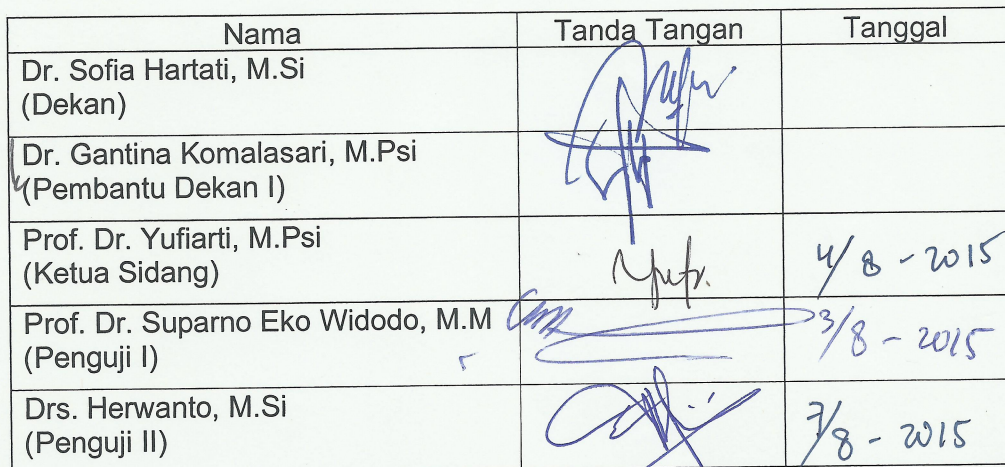 Nama Tanda Tangan Tanggal
Dr. Sofia Hartati, M.Si
(Dekan)
Dr. Gantina Komalasari, M.Psi
(Pembantu Dekan I)
Prof. Dr. Yufiarti, M.Psi
(Ketua Sidang)
4/8 - 2015
Prof. Dr. Suparno Eko Widodo, M.M
(Penguji I)
3/8 - 2015
Drs. Herwanto, M.Si
(Penguji II)
7/8 - 2015